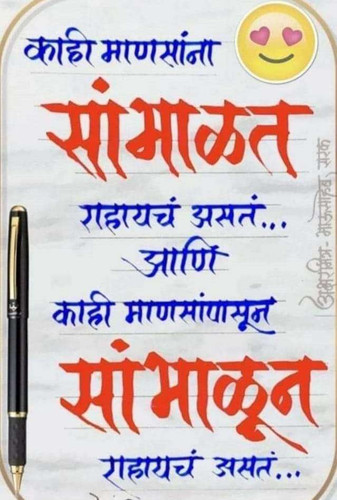 काही माणसांना
सांभाळत
राहायचं असतं...
आणि
काही माणसांपासून
सांभाळून
राहायचं असतं...
अक्षरमित्र - भाऊसाहेब